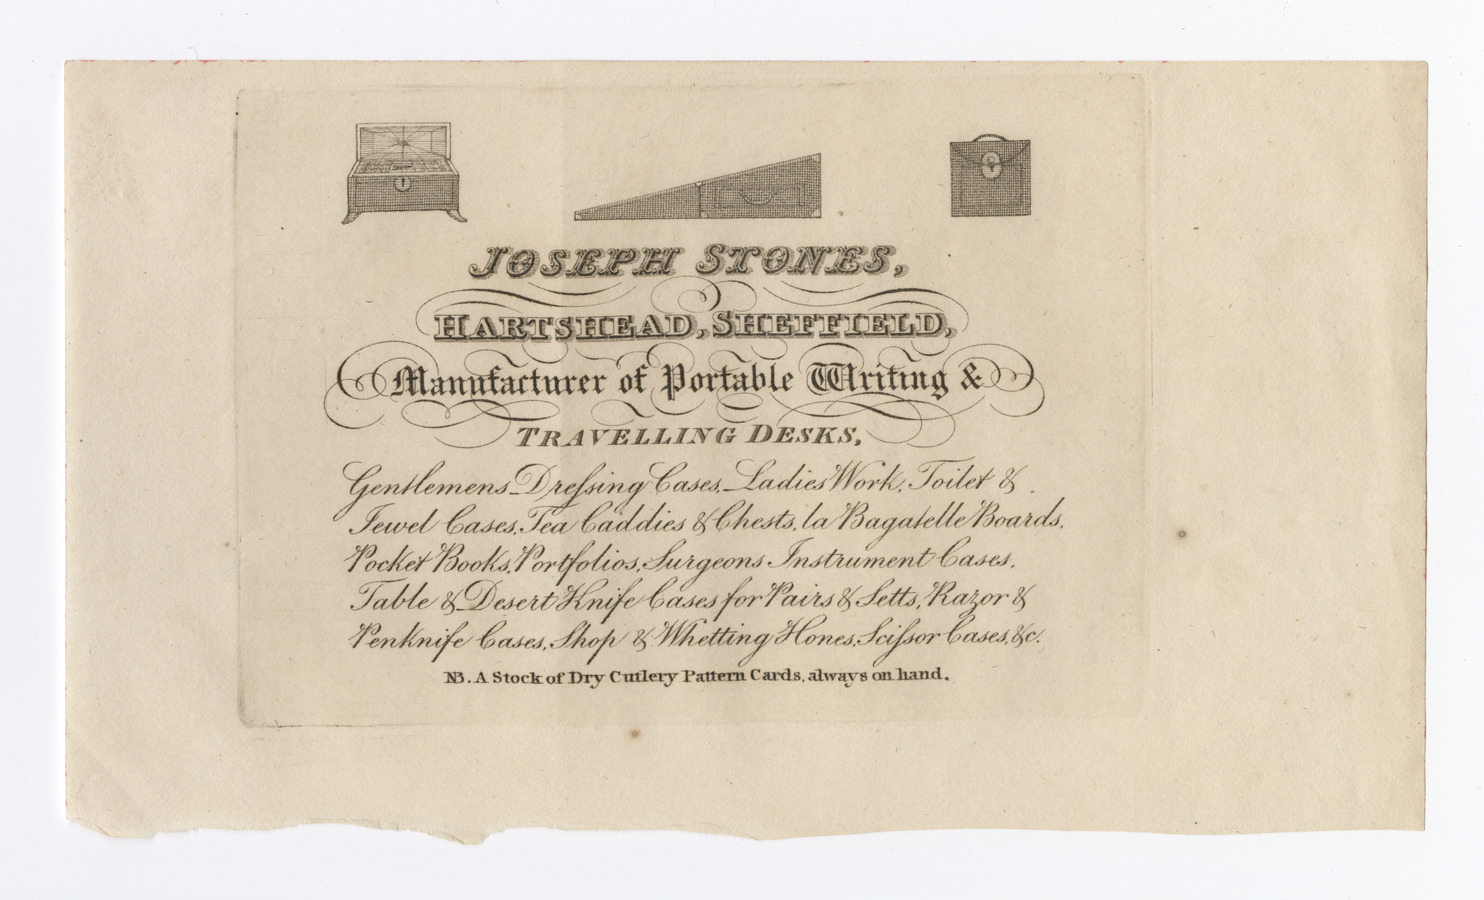 JOSEPH STONES,
HARTSHEAD, SHEFFIELD,
Manufacturer of Portable Writing &
TRAVELLING DESKS,
Gentlemens Dreſsing Cases, Ladies Work, Toilet &
Jewel Cases, Tea Caddies & Chests, la Bagatelle Boards,
Pocket Books, Portfolios, Surgeons Instrument Cases,
Table & Desert Knife Cases for Pairs & Setts, Razor &
Penknife Cases, Shop & Whetting Hones, Sciſsor Cases, &c.
NB. A Stock of Dry Cutlery Pattern Cards, always on hand.